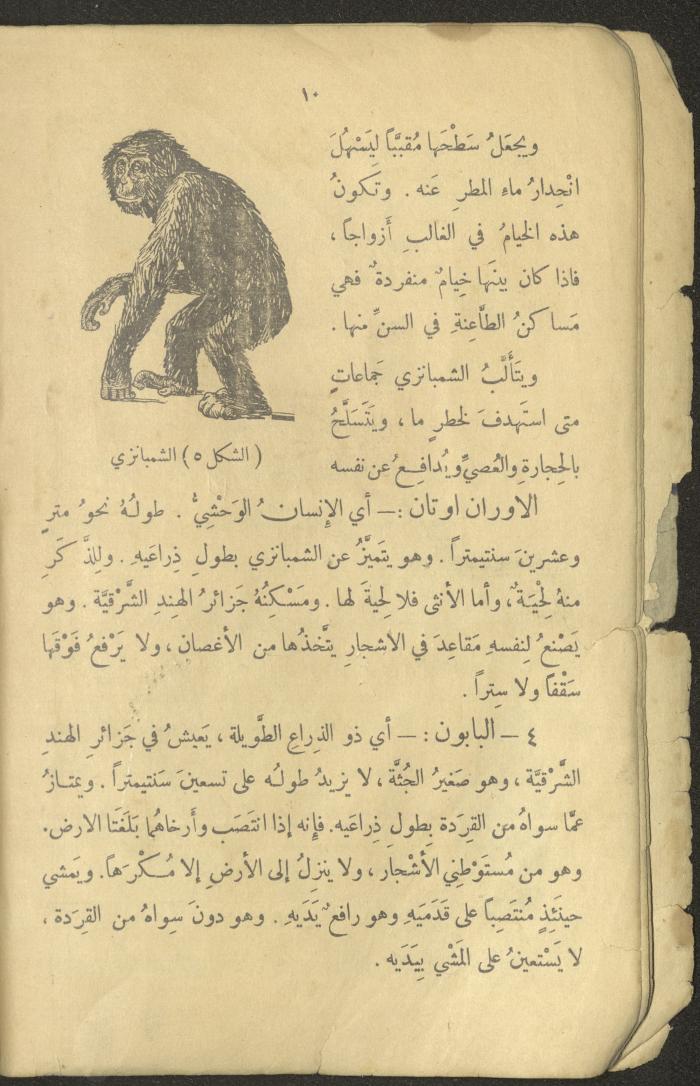 ١٠
ويجعَلُ سَطْحَها مُقبَّباً لِيَسْهُلَ
انْحِدارُ ماءِ المطرِ عَنه . وتَكونُ
هذه الخيامُ في الغالبِ أَزواجاً ،
فاذا كان بينَها خِيامٌ منفردةٌ فهي
مَساكنُ الطَّاعِنةِ في السنِّ منها .
ويتَأَلَّبُ الشمبانزي جَماعاتٍ
متى استَهدفَ لخطرٍ ما ، ويَتَسَلَّحُ
بالحِجارةِ والعُصيِّ ويُدافِعُ عن نفسه
(الشكل ٥) الشمبانزي
الاوران اوتان :— أي الإِنسانُ الوَحْشِيُّ . طولُهُ نحوُ مترٍ
وعشرينَ سنتيمتراً . وهو يتَميَّزُ عن الشمبانزي بطولِ ذِراعَيهِ . وللذَّكَرِ
منهُ لِحْيَةٌ ، وأما الأنثى فلا لحيةَ لها . ومَسْكِنُهُ جَزائرُ الهِندِ الشَّرْقيَّة . وهو
يَصْنعُ لِنفسهِ مَقاعِدَ في الاشجارِ يتَّخذُها من الأغصان ، ولا يَرْفعُ فَوْقَها
سَقْفاً ولا سِتراً .
٤ — البابون :— أي ذو الذِراعِ الطَّويلة ، يَعيشُ في جَزائرِ الهندِ
الشَّرْقيَّة ، وهو صَغيرُ الجُثَّة ، لا يزيدُ طولُه على تسعينَ سَنتيمتراً . ويمتازُ
عمَّا سواهُ من القِرَدة بِطولِ ذِراعَيه. فإنه إذا انتَصَب وأَرخاهُما بَلَغَتا الارض.
وهو من مُستَوْطِني الأشْجار ، ولا ينزِلُ إلى الأرضِ إلا مُكْرَهاً. ويَمشي
حينَئِذٍ مُنتَصِباً على قَدَمَيهِ وهو رافعٌ يَدَيهِ . وهو دونَ سِواهُ من القِرَدة ،
لا يَسْتعينُ على المَشْي بِيَدَيه .